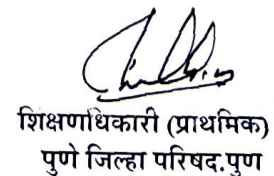 शिक्षणाधिकारी (प्राथमिक)
पुणे जिल्हा परिषद.पुण